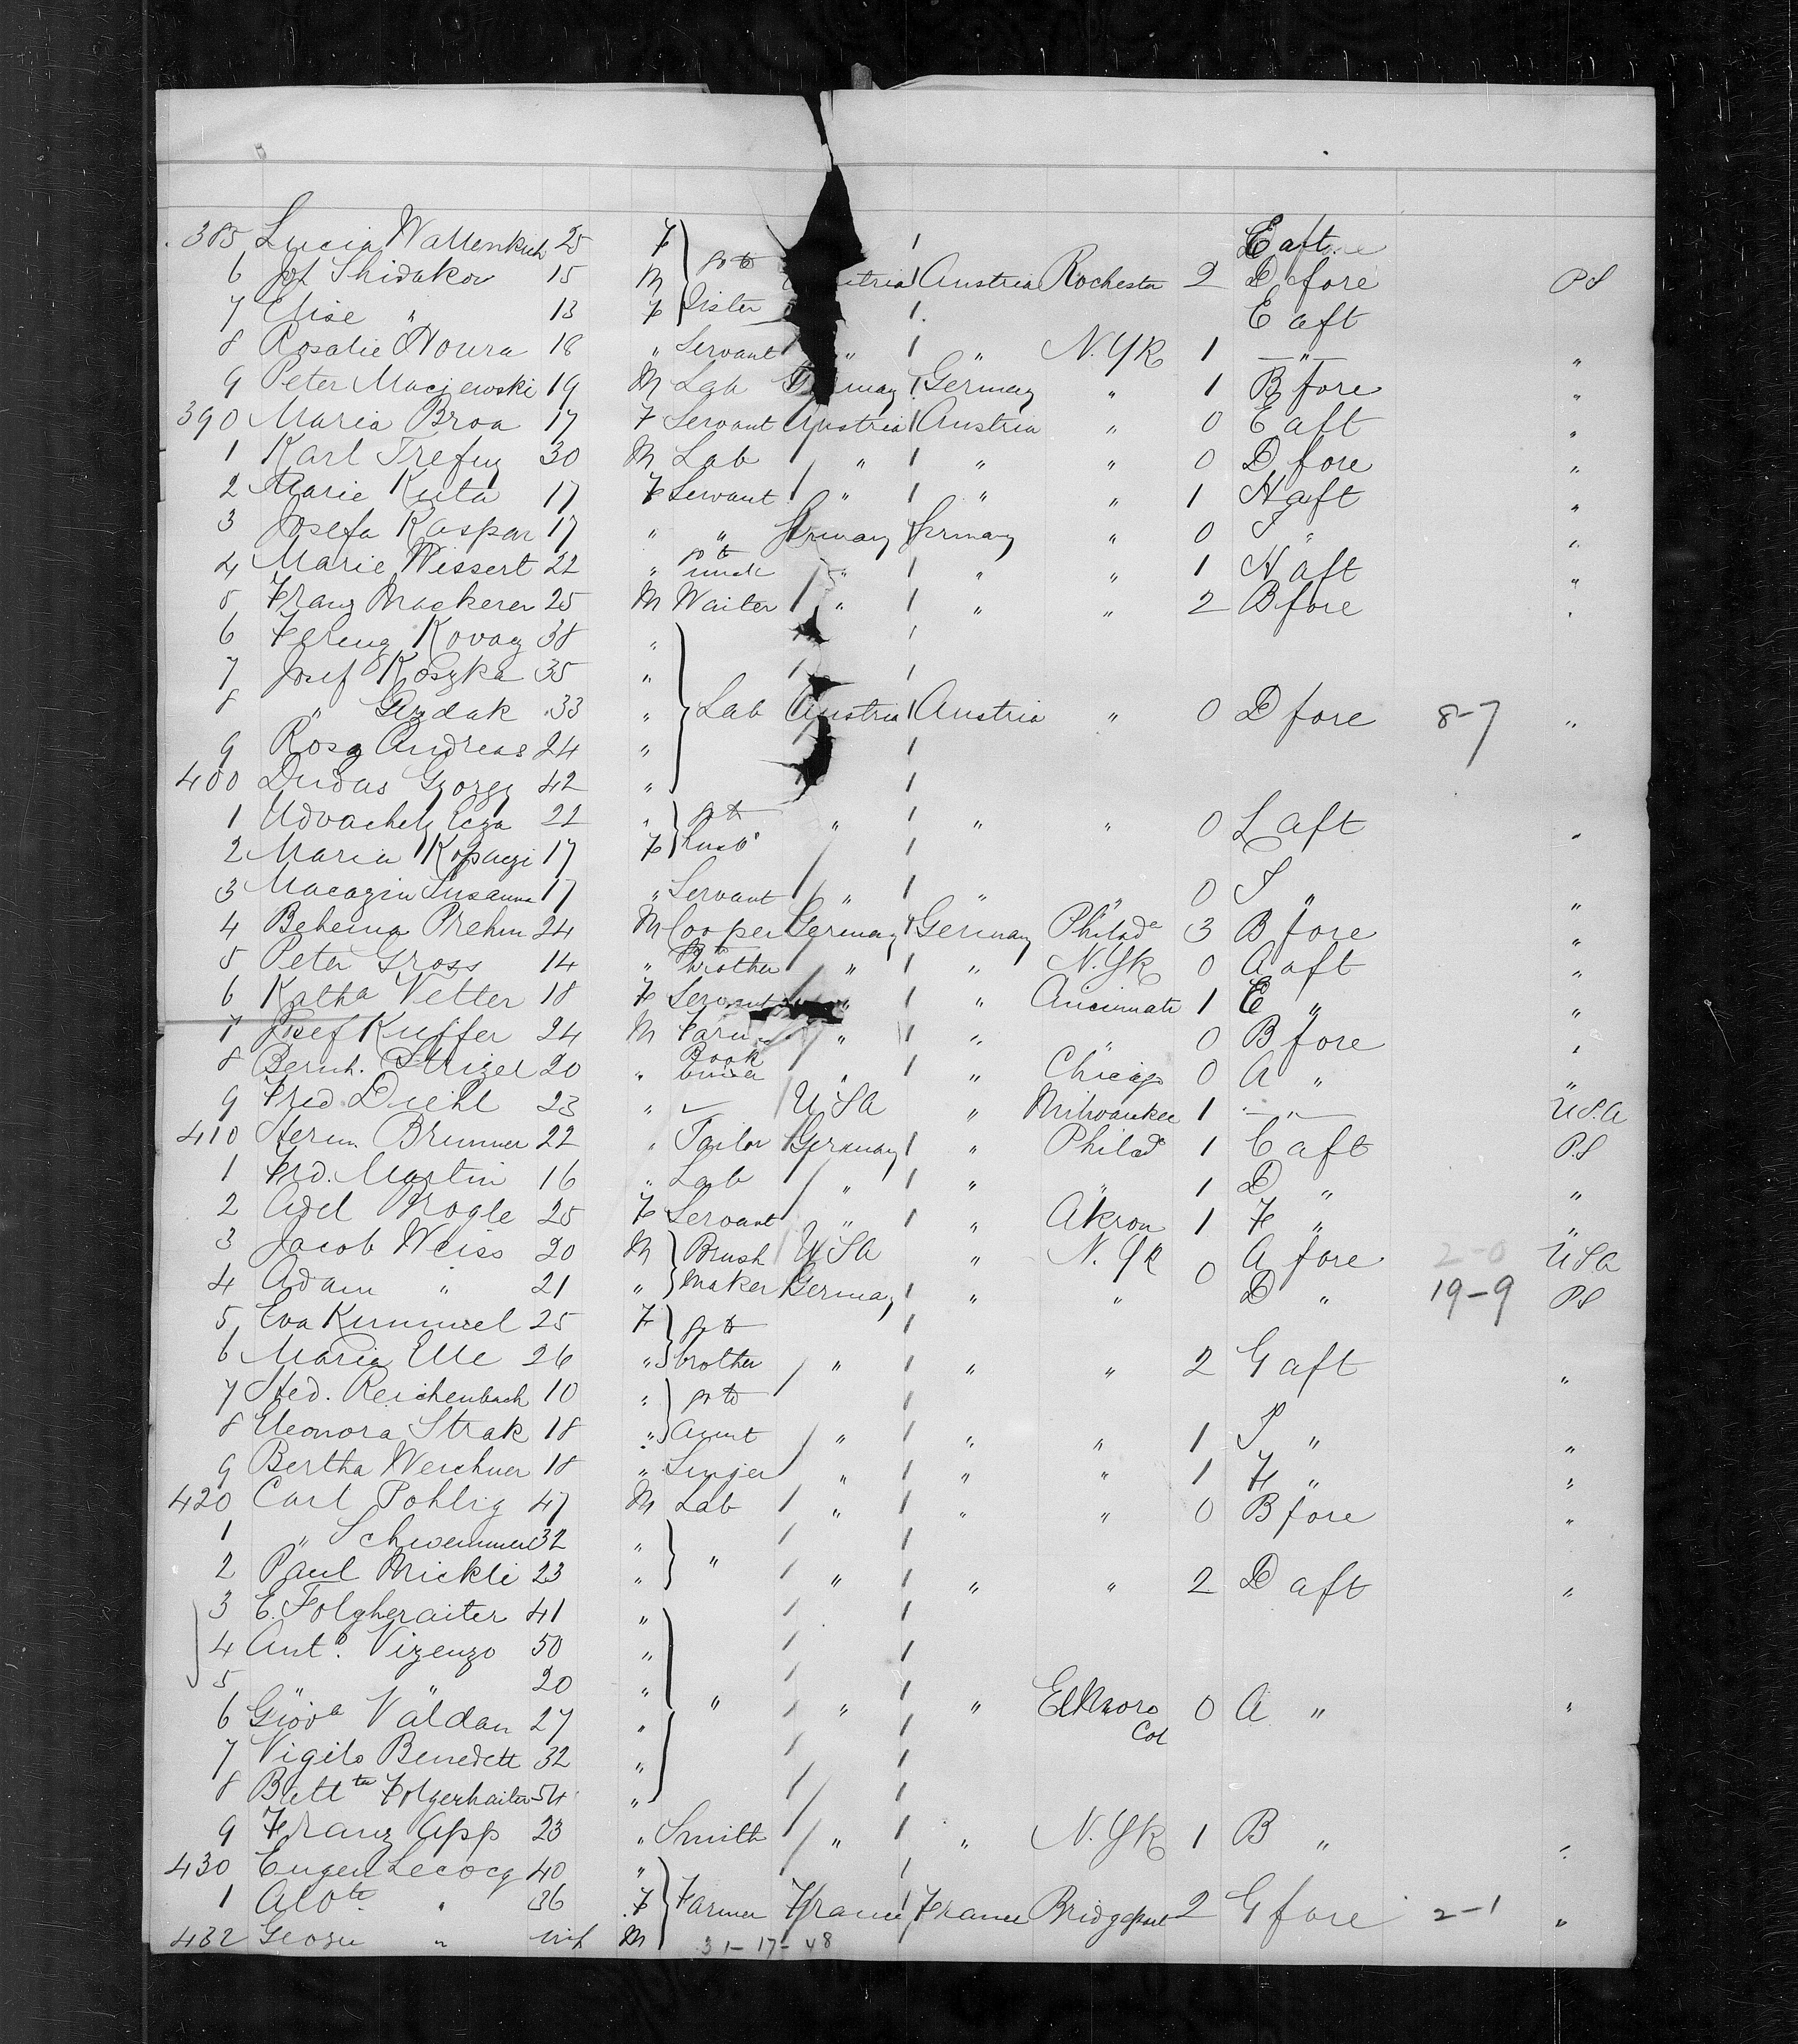 385 Lucia Wallenkich 25 F } go to E aft
6 Jos Shidakov 15 M Austria Austria Rochester 2 D fore PS
7 Elise " 13 F Sister E aft
8 Rosalie 18 " Servant " " N.Yk 1 — " — "
9 Peter Maciewski 19 M Lab Germany Germany " 1 B fore "
390 Maria Broa 17 F Servant Austria Austria " 0 E aft "
1 Karl Trefny 30 M Lab " " " 0 D fore "
2 Marie Kuta 17 F Servant " " " 1 H aft "
3 Josefa Kaspar 17 " " Germany Germany " 0 " "
4 Marie Wissert 22 " go to uncle " " " 1 H aft "
5 Franz 25 M Waiter " " " 2 B fore "
6 Ferenz Kovacz 38 "
7 Josef Koszka 35 "
8 " 33 " Lab Austria Austria " 0 D fore 8-7 "
9 Andreas 24 "
400 Dudas Gyorgy 42 "
1 22 " } go to " " " 0 L aft "
2 Maria 17 F husb
3 Susanna 17 " Servant " " " 0 "
4 Prehm 24 M Cooper Germany Germany Philada 3 B fore "
5 Peter Gross 14 " to brother " " N.Yk 0 A aft "
6 Katha Vetter 18 F Servant " " Cincinnati 1 E " "
7 Josef Kuffer 24 M Farm " " " 0 B fore "
8 Bernh. 20 " Book binder " " Chicago 0 A " "
9 Fred Diehl 23 " U SA " Milwaukee 1 — " — USA
410 Herm. Brunner 22 " Tailor Germany " Philad 1 E aft PS
1 Frd. Martin 16 " Lab " " " 1 D " "
2 Adel 25 F Servant " " Akron 1 F " "
3 Jacob Weiss 20 M } Brush U SA " N.Yk 0 A fore 2-0 USA
4 Adam " 21 " Maker Germany " " D " 19-9 PS
5 Eva Kummel 25 F } go to
6 Maria Elle 26 " brother " " " 2 G aft "
7 Hed. Reichenbach 10 " } go to
8 Eleonora Strak 18 " Aunt " " " 1 " "
9 Bertha Weichner 18 " Singer " " " 1 F " "
420 Carl Pohlig 47 M Lab " " " 0 B fore "
1 " Schwemmer 32 "
2 Paul Mickli 23 " } " " " " 2 D aft "
3 E. Folgheraiter 41 "
4 Anto. Vizenzo 50 "
5 " " 20 "
6 Giova Valdan 27 " " " " Elkmoro Col 0 A " "
7 Vigilo Benedett 32 "
8 Batt ta Folgerhaiter 54 "
9 Franz App 23 " Smith " " N.Yk 1 B " "
430 Eugen Lecocq 40 "
1 " 36 F } Farmer France France Bridgeport 2 G fore 2-1 "
432 " inf M
31-17-48